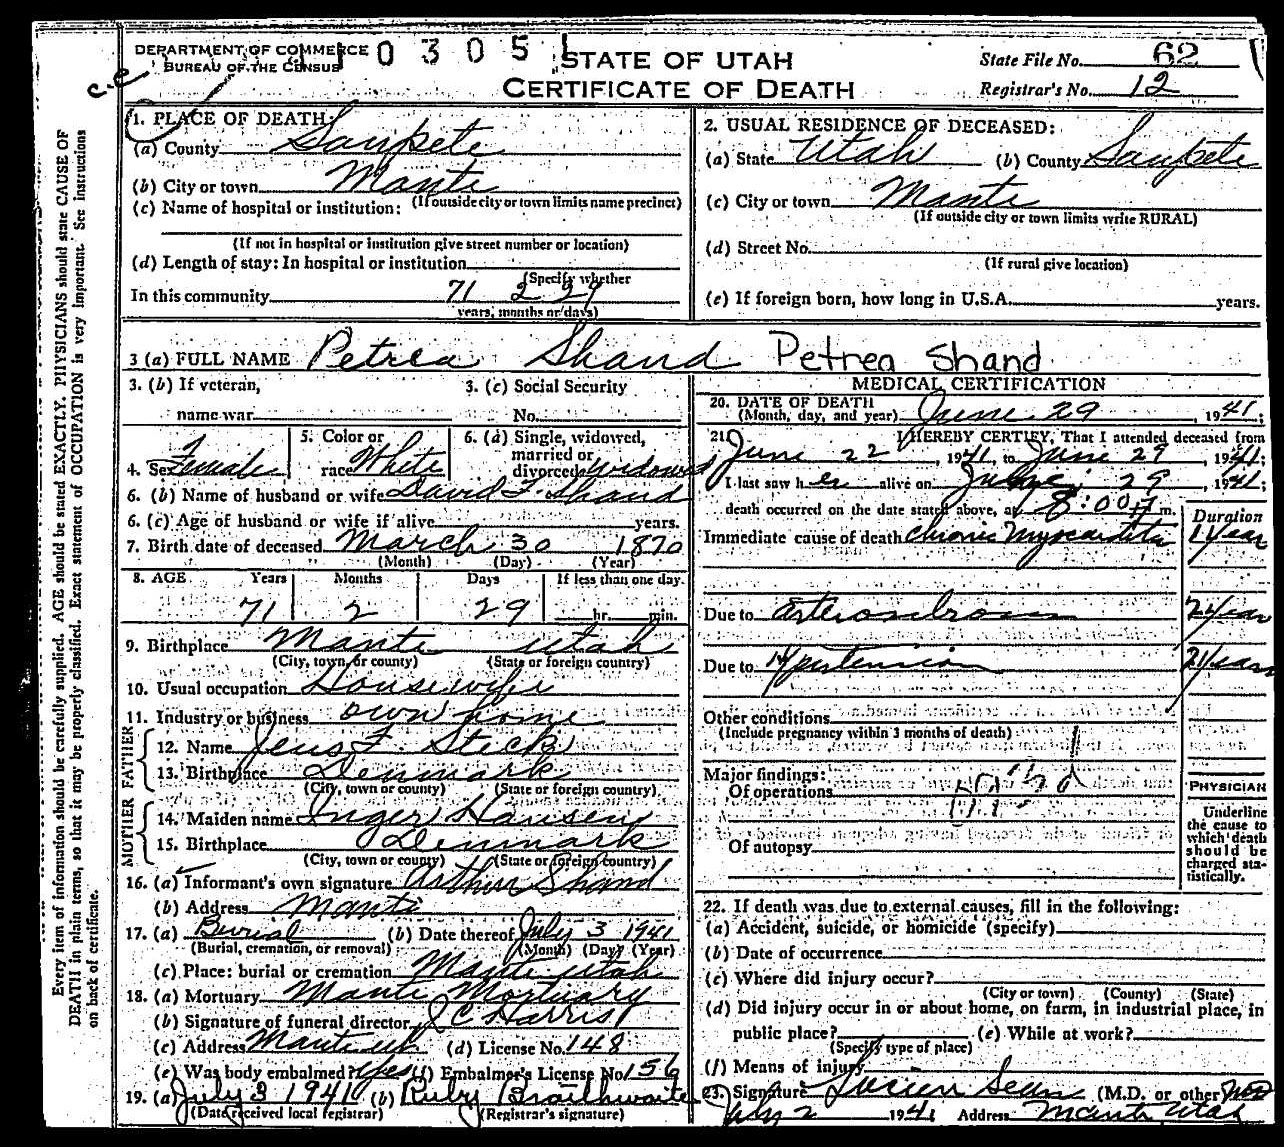 DEPARTMENT OF COMMERCE
BUREAU OF THE CENSUS
0 3 0 5 1
STATE OF UTAH
CERTIFICATE OF DEATH
State File No. 62
Registrar's No. 12
c-c
Every item of information should be carefully supplied. AGE should be stated EXACTLY. PHYSICIANS should state CAUSE OF
DEATH in plain terms, so that it may be properly classified. Exact statement of OCCUPATION is very important. See instructions
on back of certificate.
1. PLACE OF DEATH:
(a) County Sanpete
(b) City or town Manti
(If outside city or town limits name precinct)
(c) Name of hospital or institution:
(If not in hospital or institution give street number or location)
(d) Length of stay: In hospital or institution
(Specify whether
In this community 71 2 29
years, months or days)
2. USUAL RESIDENCE OF DECEASED:
(a) State Utah (b) County Sanpete
(c) City or town Manti
(If outside city or town limits write RURAL)
(d) Street No.
(If rural give location)
(e) If foreign born, how long in U.S.A. years.
3 (a) FULL NAME Petrea Shand Petrea Shand
3. (b) If veteran, 3. (c) Social Security
name war No.
4. Sex Female 5. Color or race White 6. (a) Single, widowed, married or divorced Widowed
6. (b) Name of husband or wife David F. Shand
6. (c) Age of husband or wife if alive years.
7. Birth date of deceased March 30 1870
(Month) (Day) (Year)
8. AGE Years Months Days If less than one day.
71 2 29 hr. min.
9. Birthplace Manti Utah
(City, town, or county) (State or foreign country)
10. Usual occupation Housewife
11. Industry or business own home
FATHER
12. Name Jens F. Steck
13. Birthplace Denmark
(City, town or county) (State or foreign country)
MOTHER
14. Maiden name Inger Hansen
15. Birthplace Denmark
(City, town or county) (State or foreign country)
16. (a) Informant's own signature Arthur Shand
(b) Address Manti
17. (a) Burial (b) Date thereof July 3 1941
(Burial, cremation, or removal) (Month) (Day) (Year)
(c) Place: burial or cremation Manti Utah
18. (a) Mortuary Manti Mortuary
(b) Signature of funeral director J C Harris
(c) Address Manti Utah (d) License No. 148
(e) Was body embalmed? yes (f) Embalmer's License No. 156
19. (a) July 3 1941 (b) Ruby Braithwaite
(Date received local registrar) (Registrar's signature)
MEDICAL CERTIFICATION
20. DATE OF DEATH
(Month, day, and year) June 29, 1941;
21. I HEREBY CERTIFY, That I attended deceased from
June 22, 1941, to June 29, 1941;
I last saw her alive on June 29, 1941;
death occurred on the date stated above, at 8:00 m.
Duration
Immediate cause of death chronic Myocarditis 1 year
Due to arteriosclerosis 2 years
Due to Hypertension 2 years
Other conditions
(Include pregnancy within 3 months of death)
Major findings:
Of operations
Of autopsy
PHYSICIAN
Underline
the cause to
which death
should be
charged sta-
tistically.
22. If death was due to external causes, fill in the following:
(a) Accident, suicide, or homicide (specify)
(b) Date of occurrence
(c) Where did injury occur?
(City or town) (County) (State)
(d) Did injury occur in or about home, on farm, in industrial place, in
public place? (e) While at work?
(Specify type of place)
(f) Means of injury
23. Signature Lucien Sears (M.D. or other) MD
July 2 1941 Address Manti, Utah